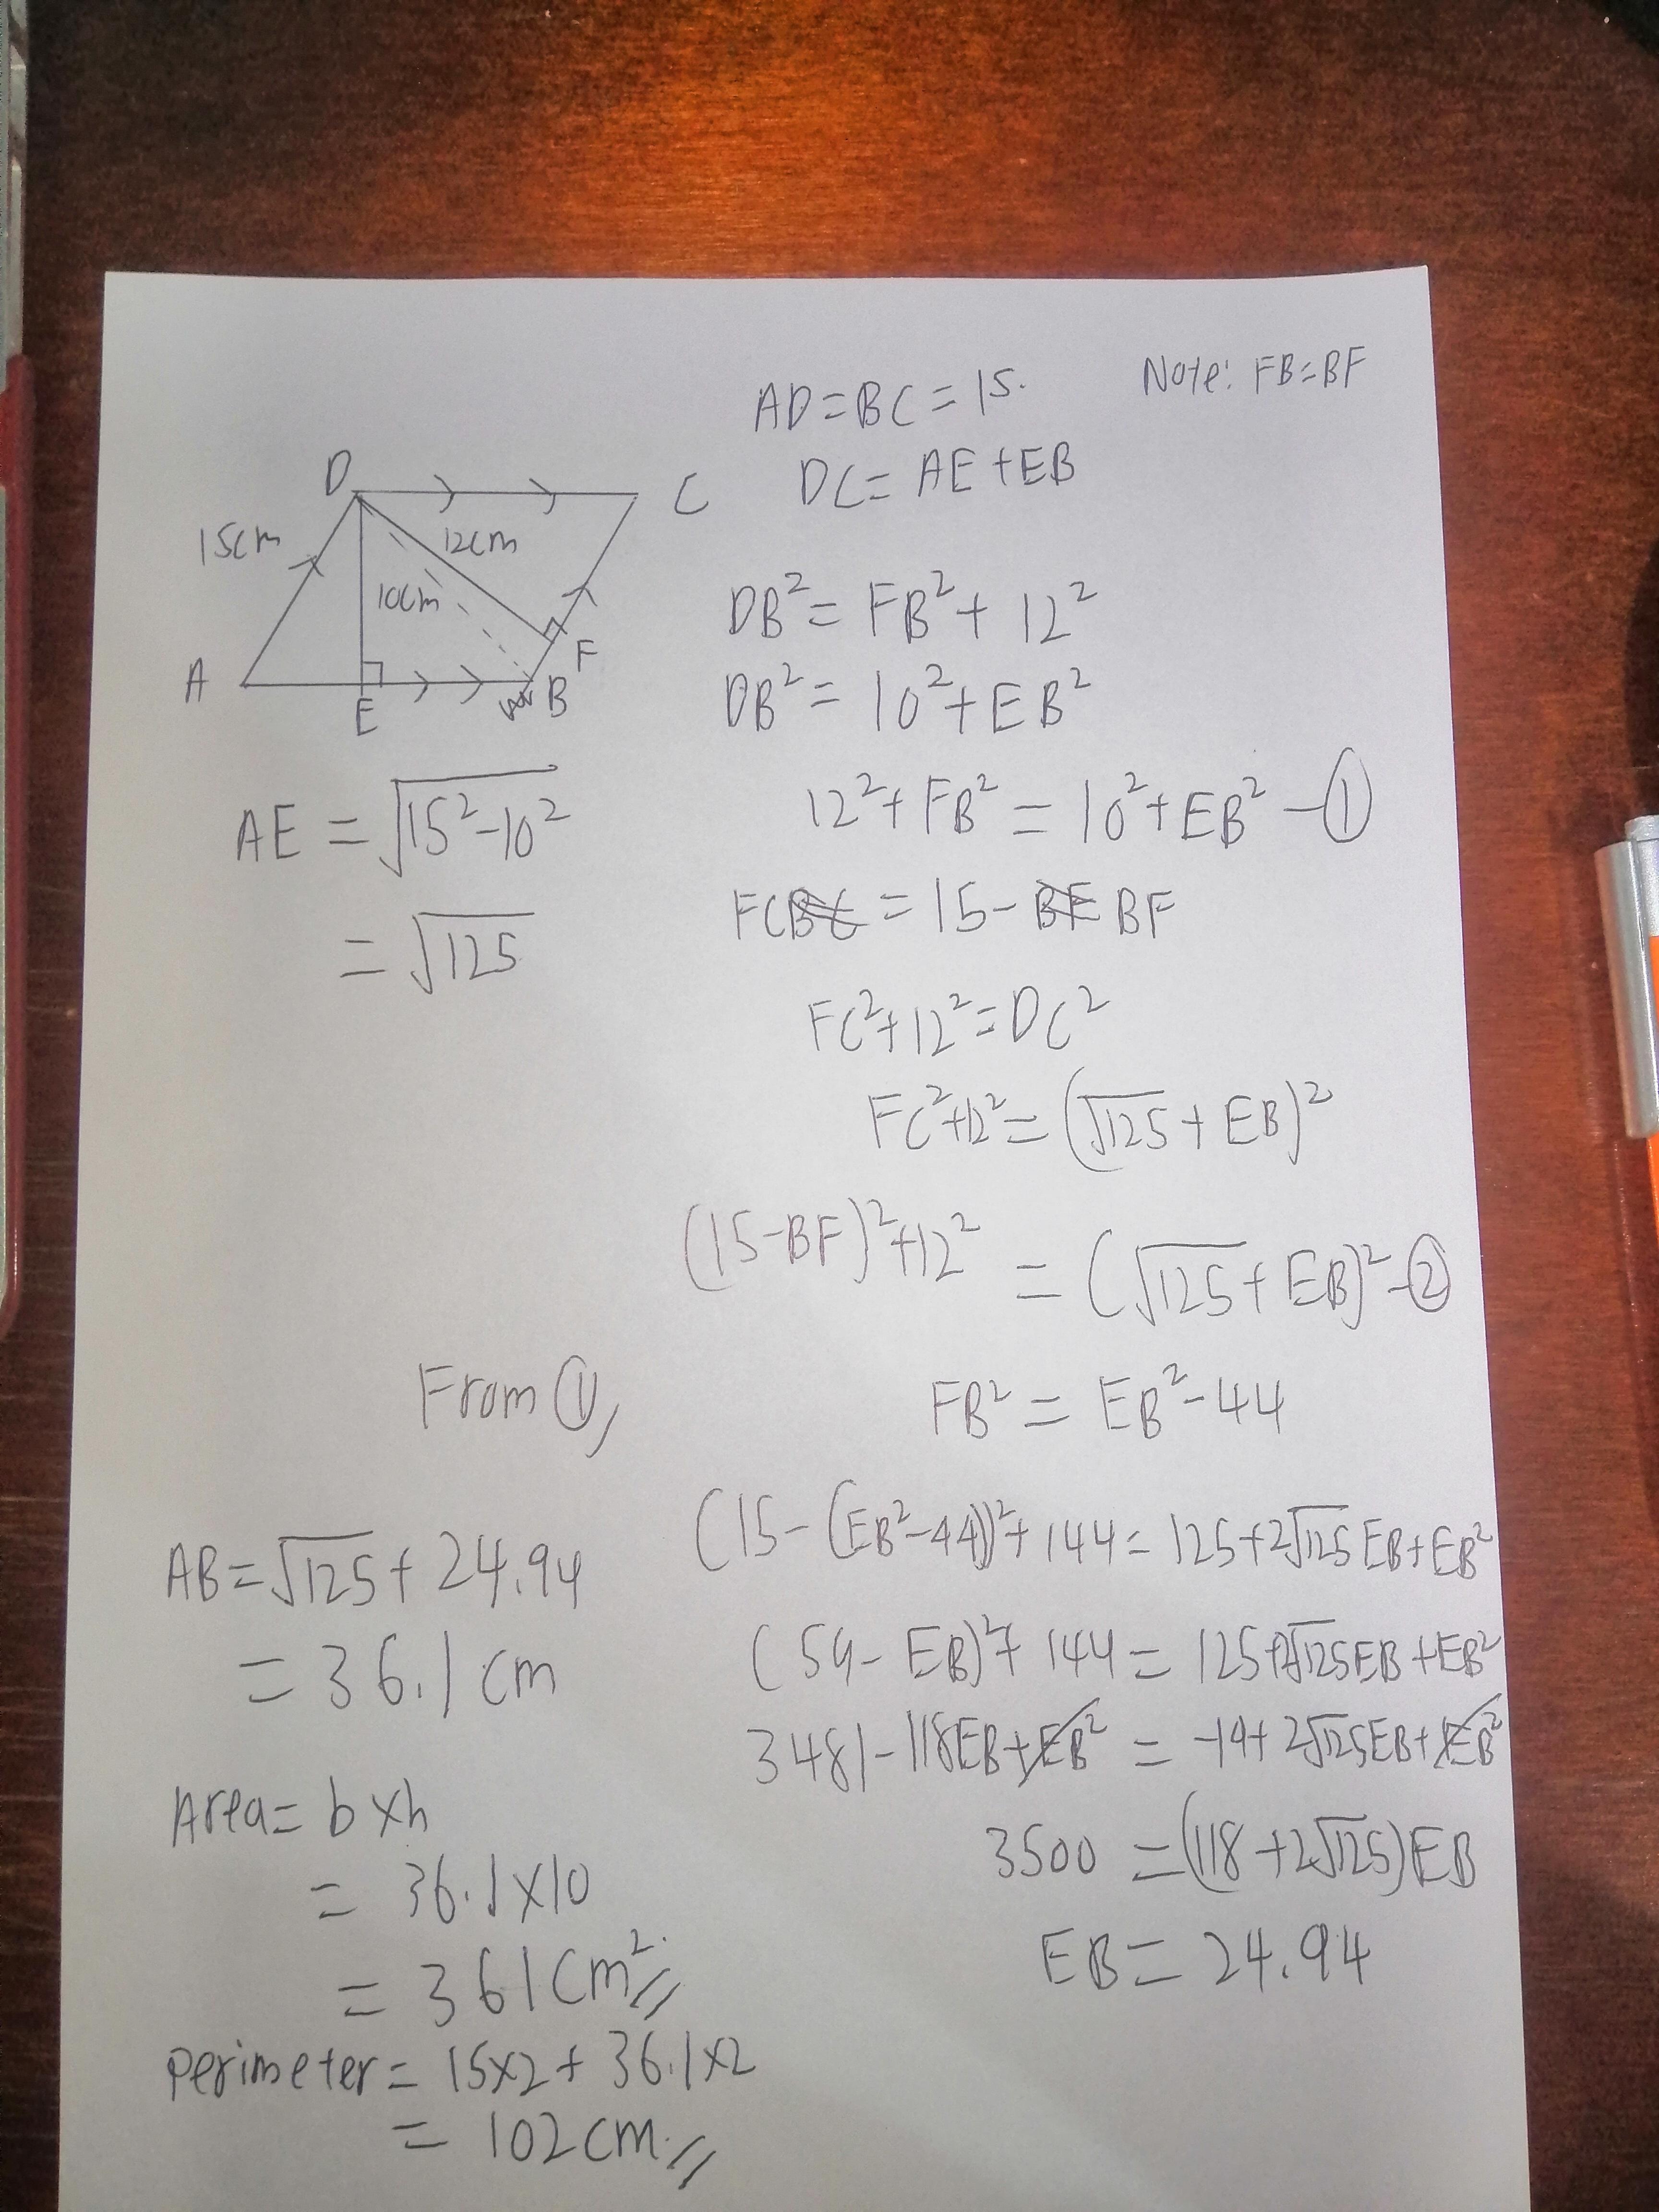 Note: FB=BF
AD=BC=15.
DC=AE+EB
D
C
15cm
12cm
10cm
A
E
B
F
DB²=FB²+12²
DB²=10²+EB²
12²+FB²=10²+EB² -①
AE=√15²-10²
=√125
FC=15-BF
FC²+12²=DC²
FC²+12²=(√125+EB)²
(15-BF)²+12²=(√125+EB)² -②
From ①,
FB²=EB²-44
(15-(EB²-44))²+144=125+2√125EB+EB²
(59-EB)²+144=125+2√125EB+EB²
3481-118EB+EB²=-19+2√125EB+EB²
3500=(118+2√125)EB
EB=24.94
AB=√125+24.94
=36.1cm
Area=b×h
=36.1×10
=361cm²
perimeter=15×2+36.1×2
=102cm.